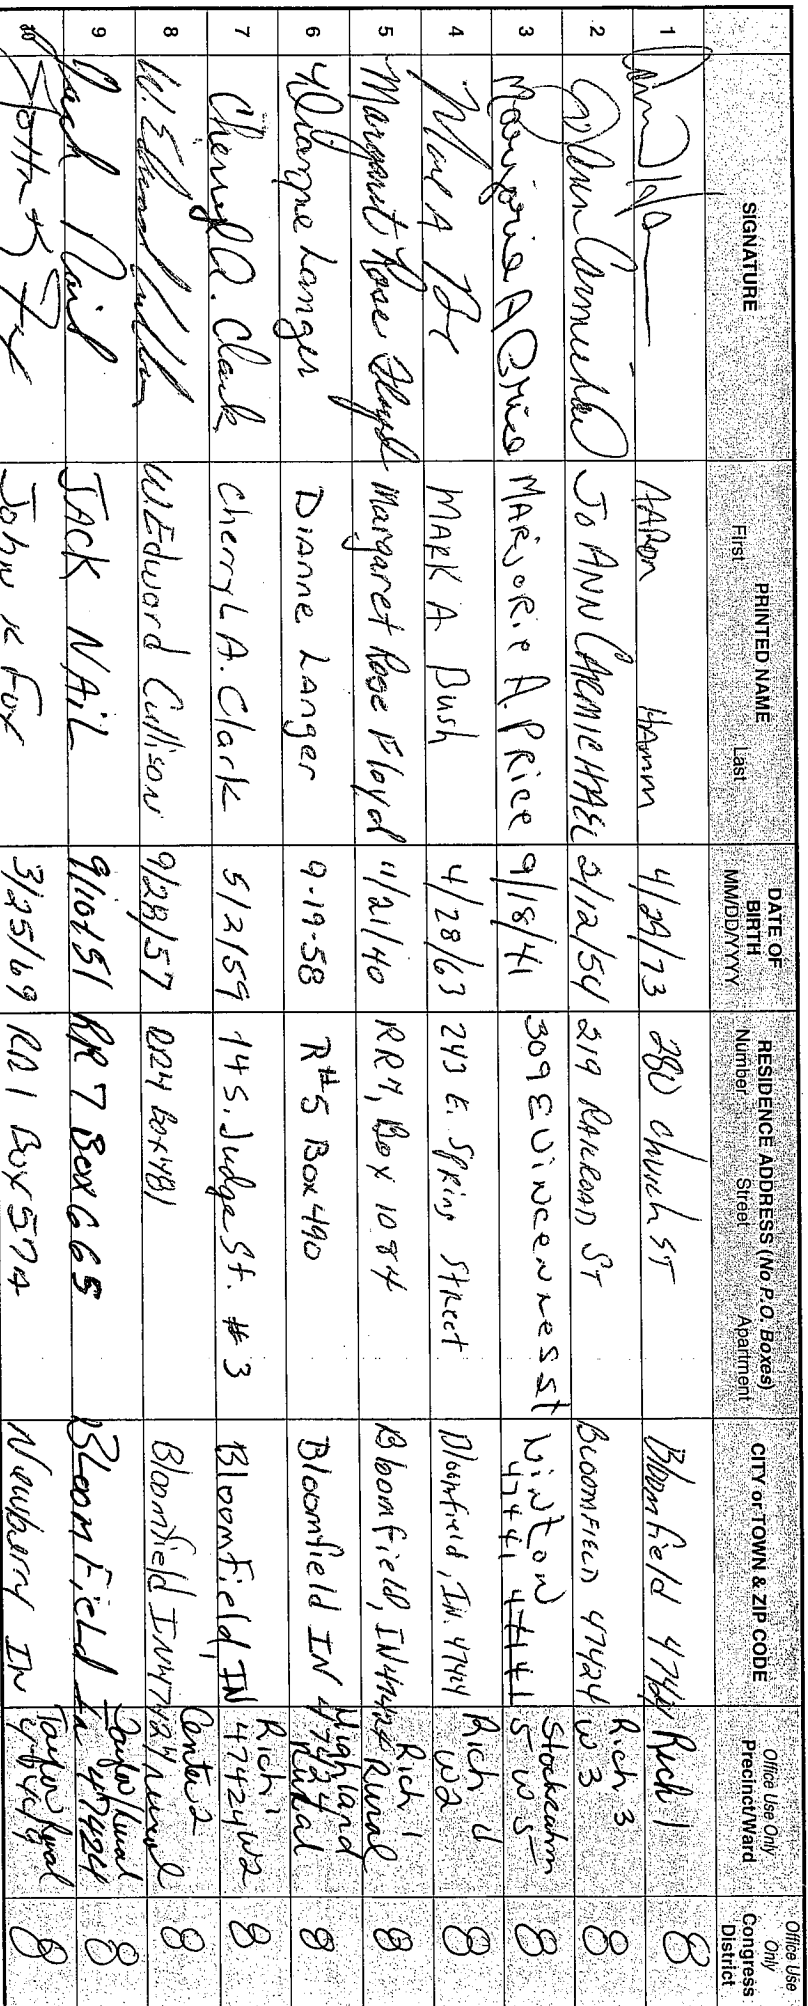 SIGNATURE
PRINTED NAME
First Last
DATE OF BIRTH
MM/DD/YYYY
RESIDENCE ADDRESS (No P.O. Boxes)
Number Street Apartment
CITY or TOWN & ZIP CODE
Office Use Only
Precinct/Ward
Office Use Only
Congress District
1 AARON HAMM 4/29/73 280 Church ST Bloomfield 47424 Rich 1 8
2 Jo Ann Carmichael Jo ANN CARMICHAEL 2/12/54 219 RAILROAD ST BLOOMFIELD 47424 Rich 3 W3 8
3 Marjorie A Price MARJORIE A. PRICE 9/18/41 309 E Vincennes St Linton 47441 47441 Stockton 5 W5 8
4 Mark A MARK A Bush 4/28/63 243 E. Spring Street Bloomfield, IN. 47424 Rich W2 8
5 Margaret Rose Floyd Margaret Rose Floyd 11/21/40 RR4, Box 1084 Bloomfield, IN 47424 Rich 1 Rural 8
6 Dianne Langer Dianne Langer 9-19-58 R#5 Box 490 Bloomfield IN 47424 Highland Rural 8
7 Cheryl A. Clark Cherryl A. Clark 5/2/59 14 S. Judge St. #3 Bloomfield, IN 47424 Rich 1 W2 8
8 W. Edward Cullison W. Edward Cullison 9/28/57 RR4 Box 481 Bloomfield IN 47424 Center 2 Rural 8
9 Jack Nail JACK NAIL 9/10/51 RR 7 Box 665 Bloomfield In 47424 Taylor Rural 8
10 John K Fox 3/25/69 RR 1 Box 57A Newberry IN Taylor Rural 8